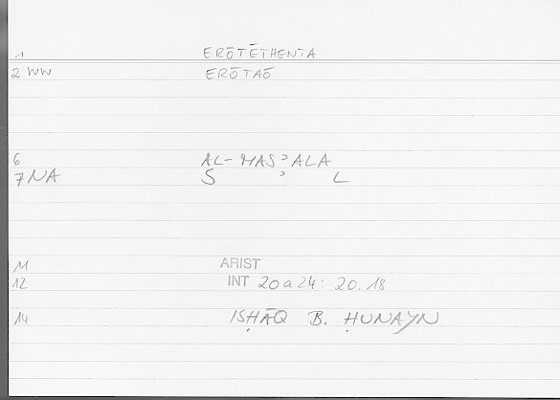 1 ERŌTĒTHENTA
2 WW ERŌTAŌ
6 AL-MASʾALA
7 NA S ʾ L
11 ARIST
12 INT 20a24: 20.18
14 ISḤĀQ B. ḤUNAYN